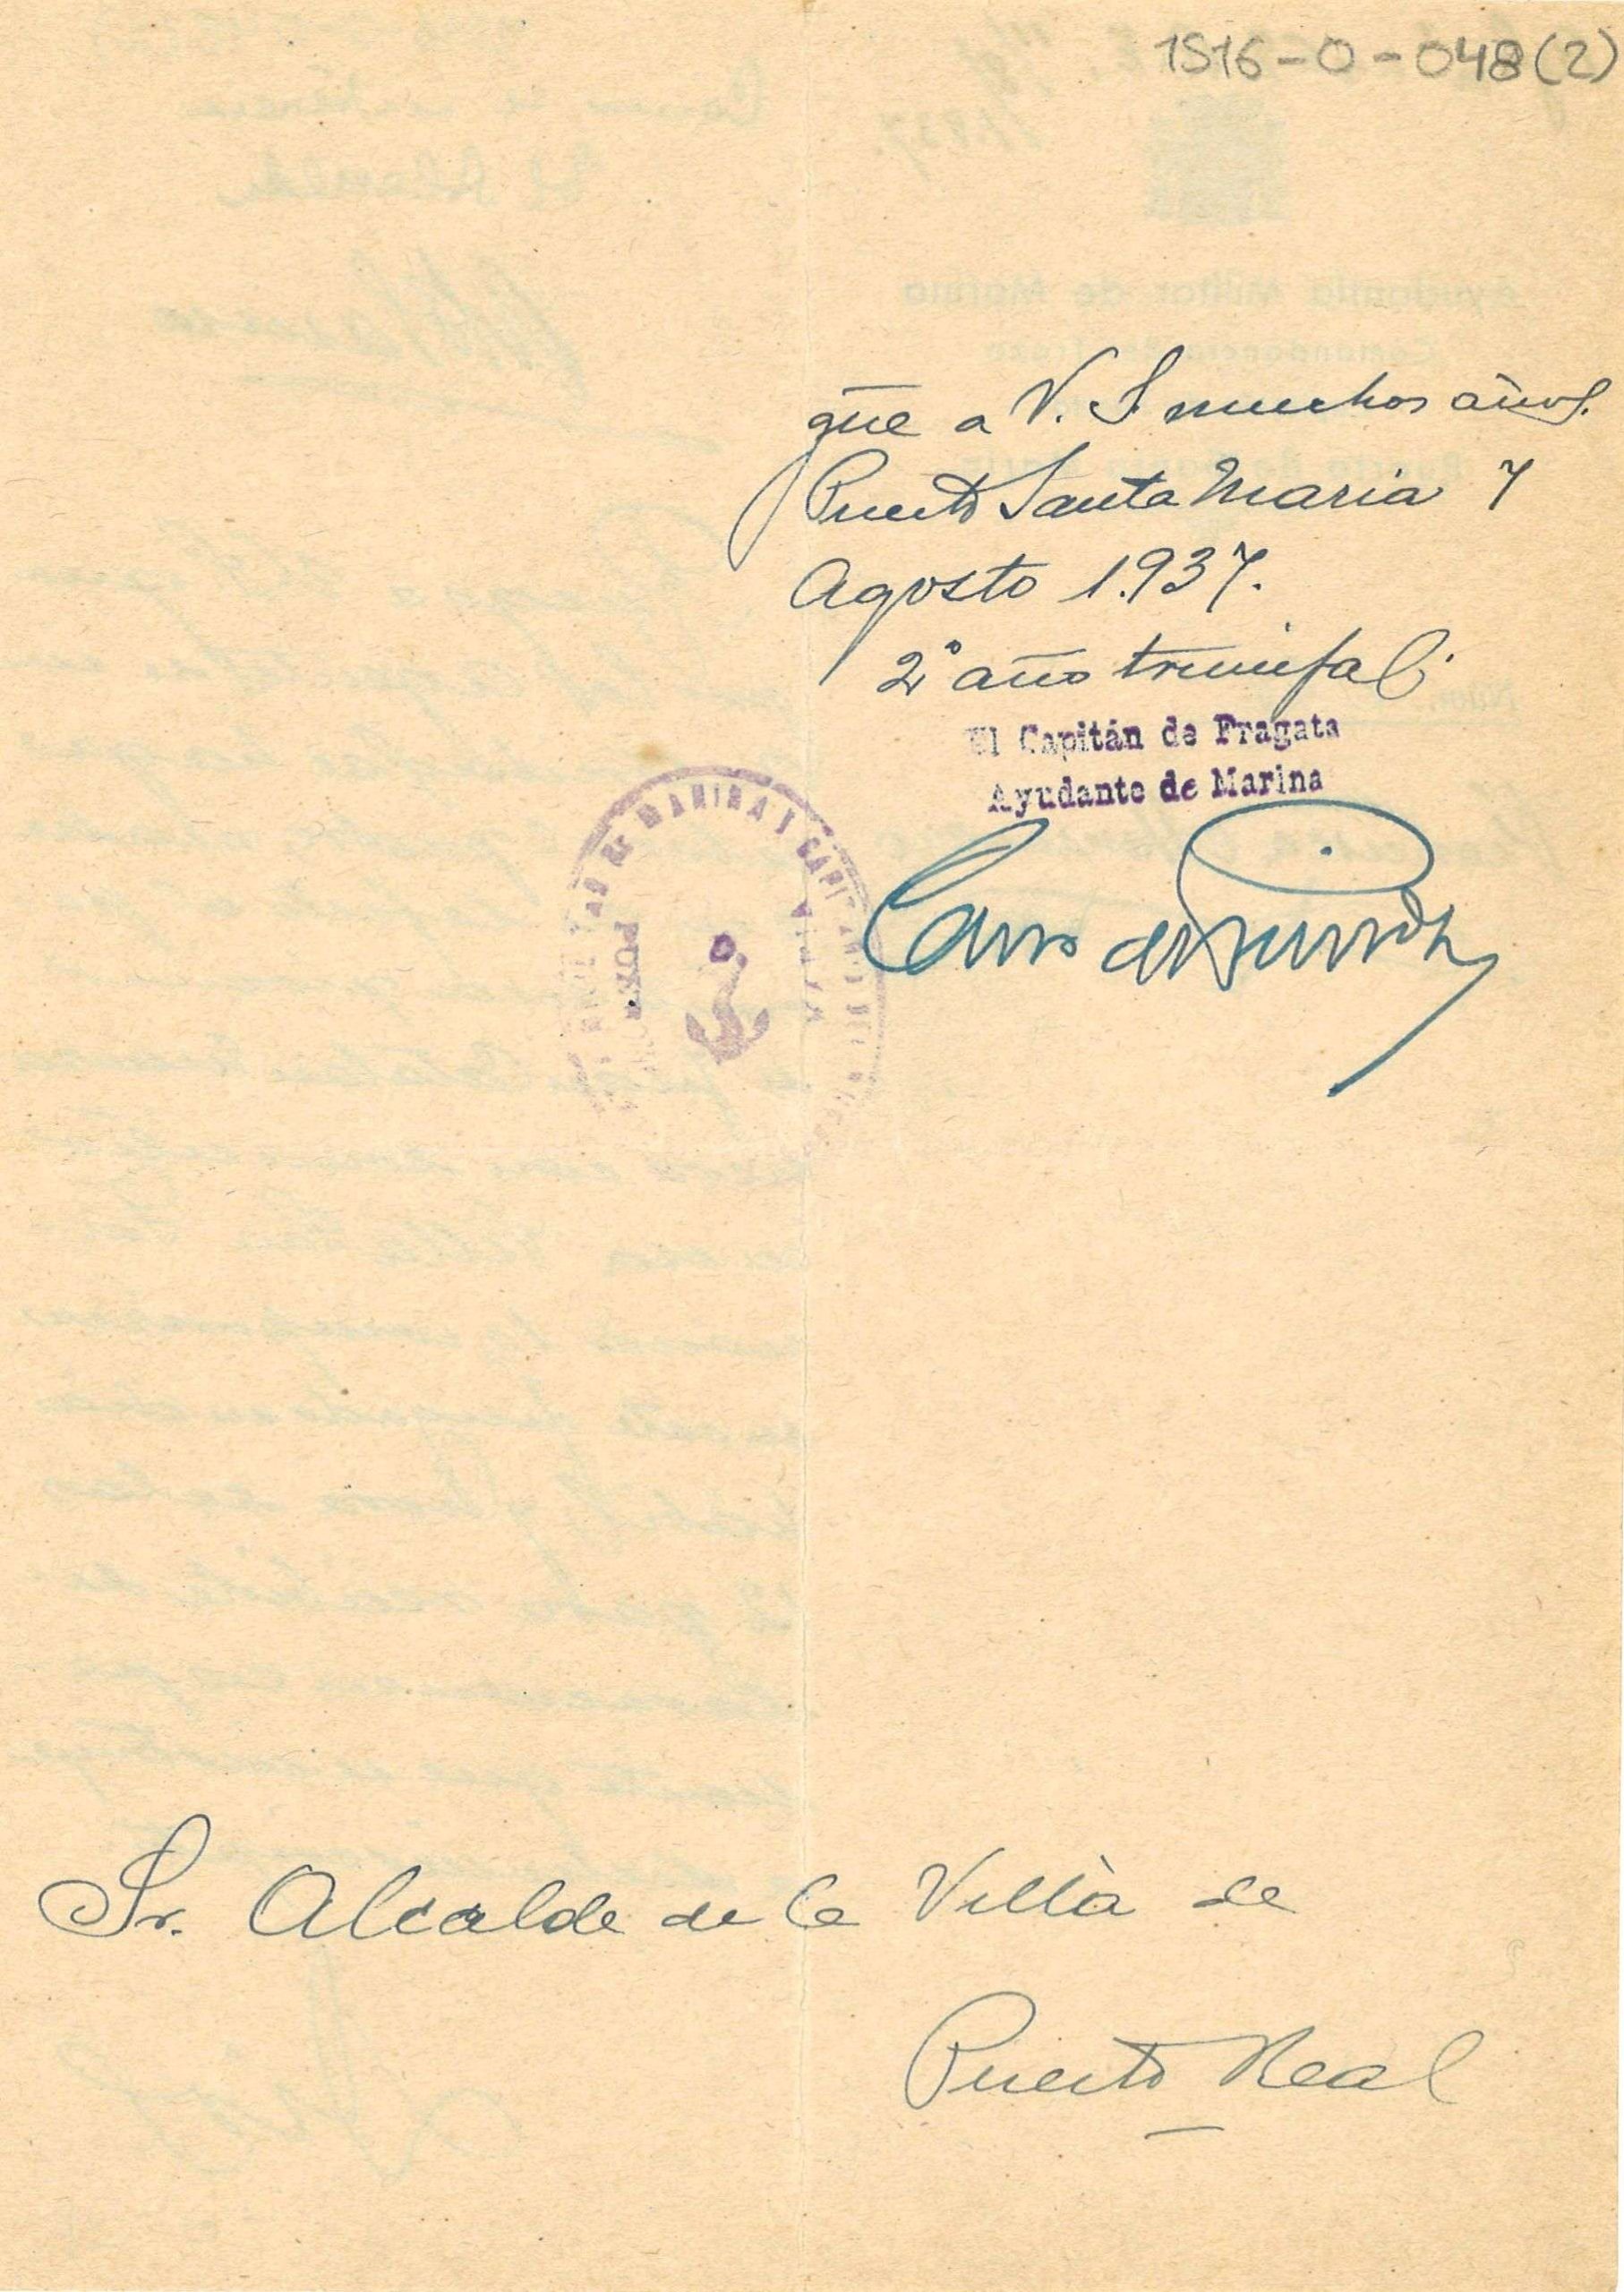 1516-0-048(2)
gūe a V. S. muchos años.
Puerto Santa Maria 7
Agosto 1.937.
2º año triunfal.
El Capitán de Fragata
Ayudante de Marina
MARINA Y CAPI
PUER
Sr. Alcalde de la Villa de
Puerto Real